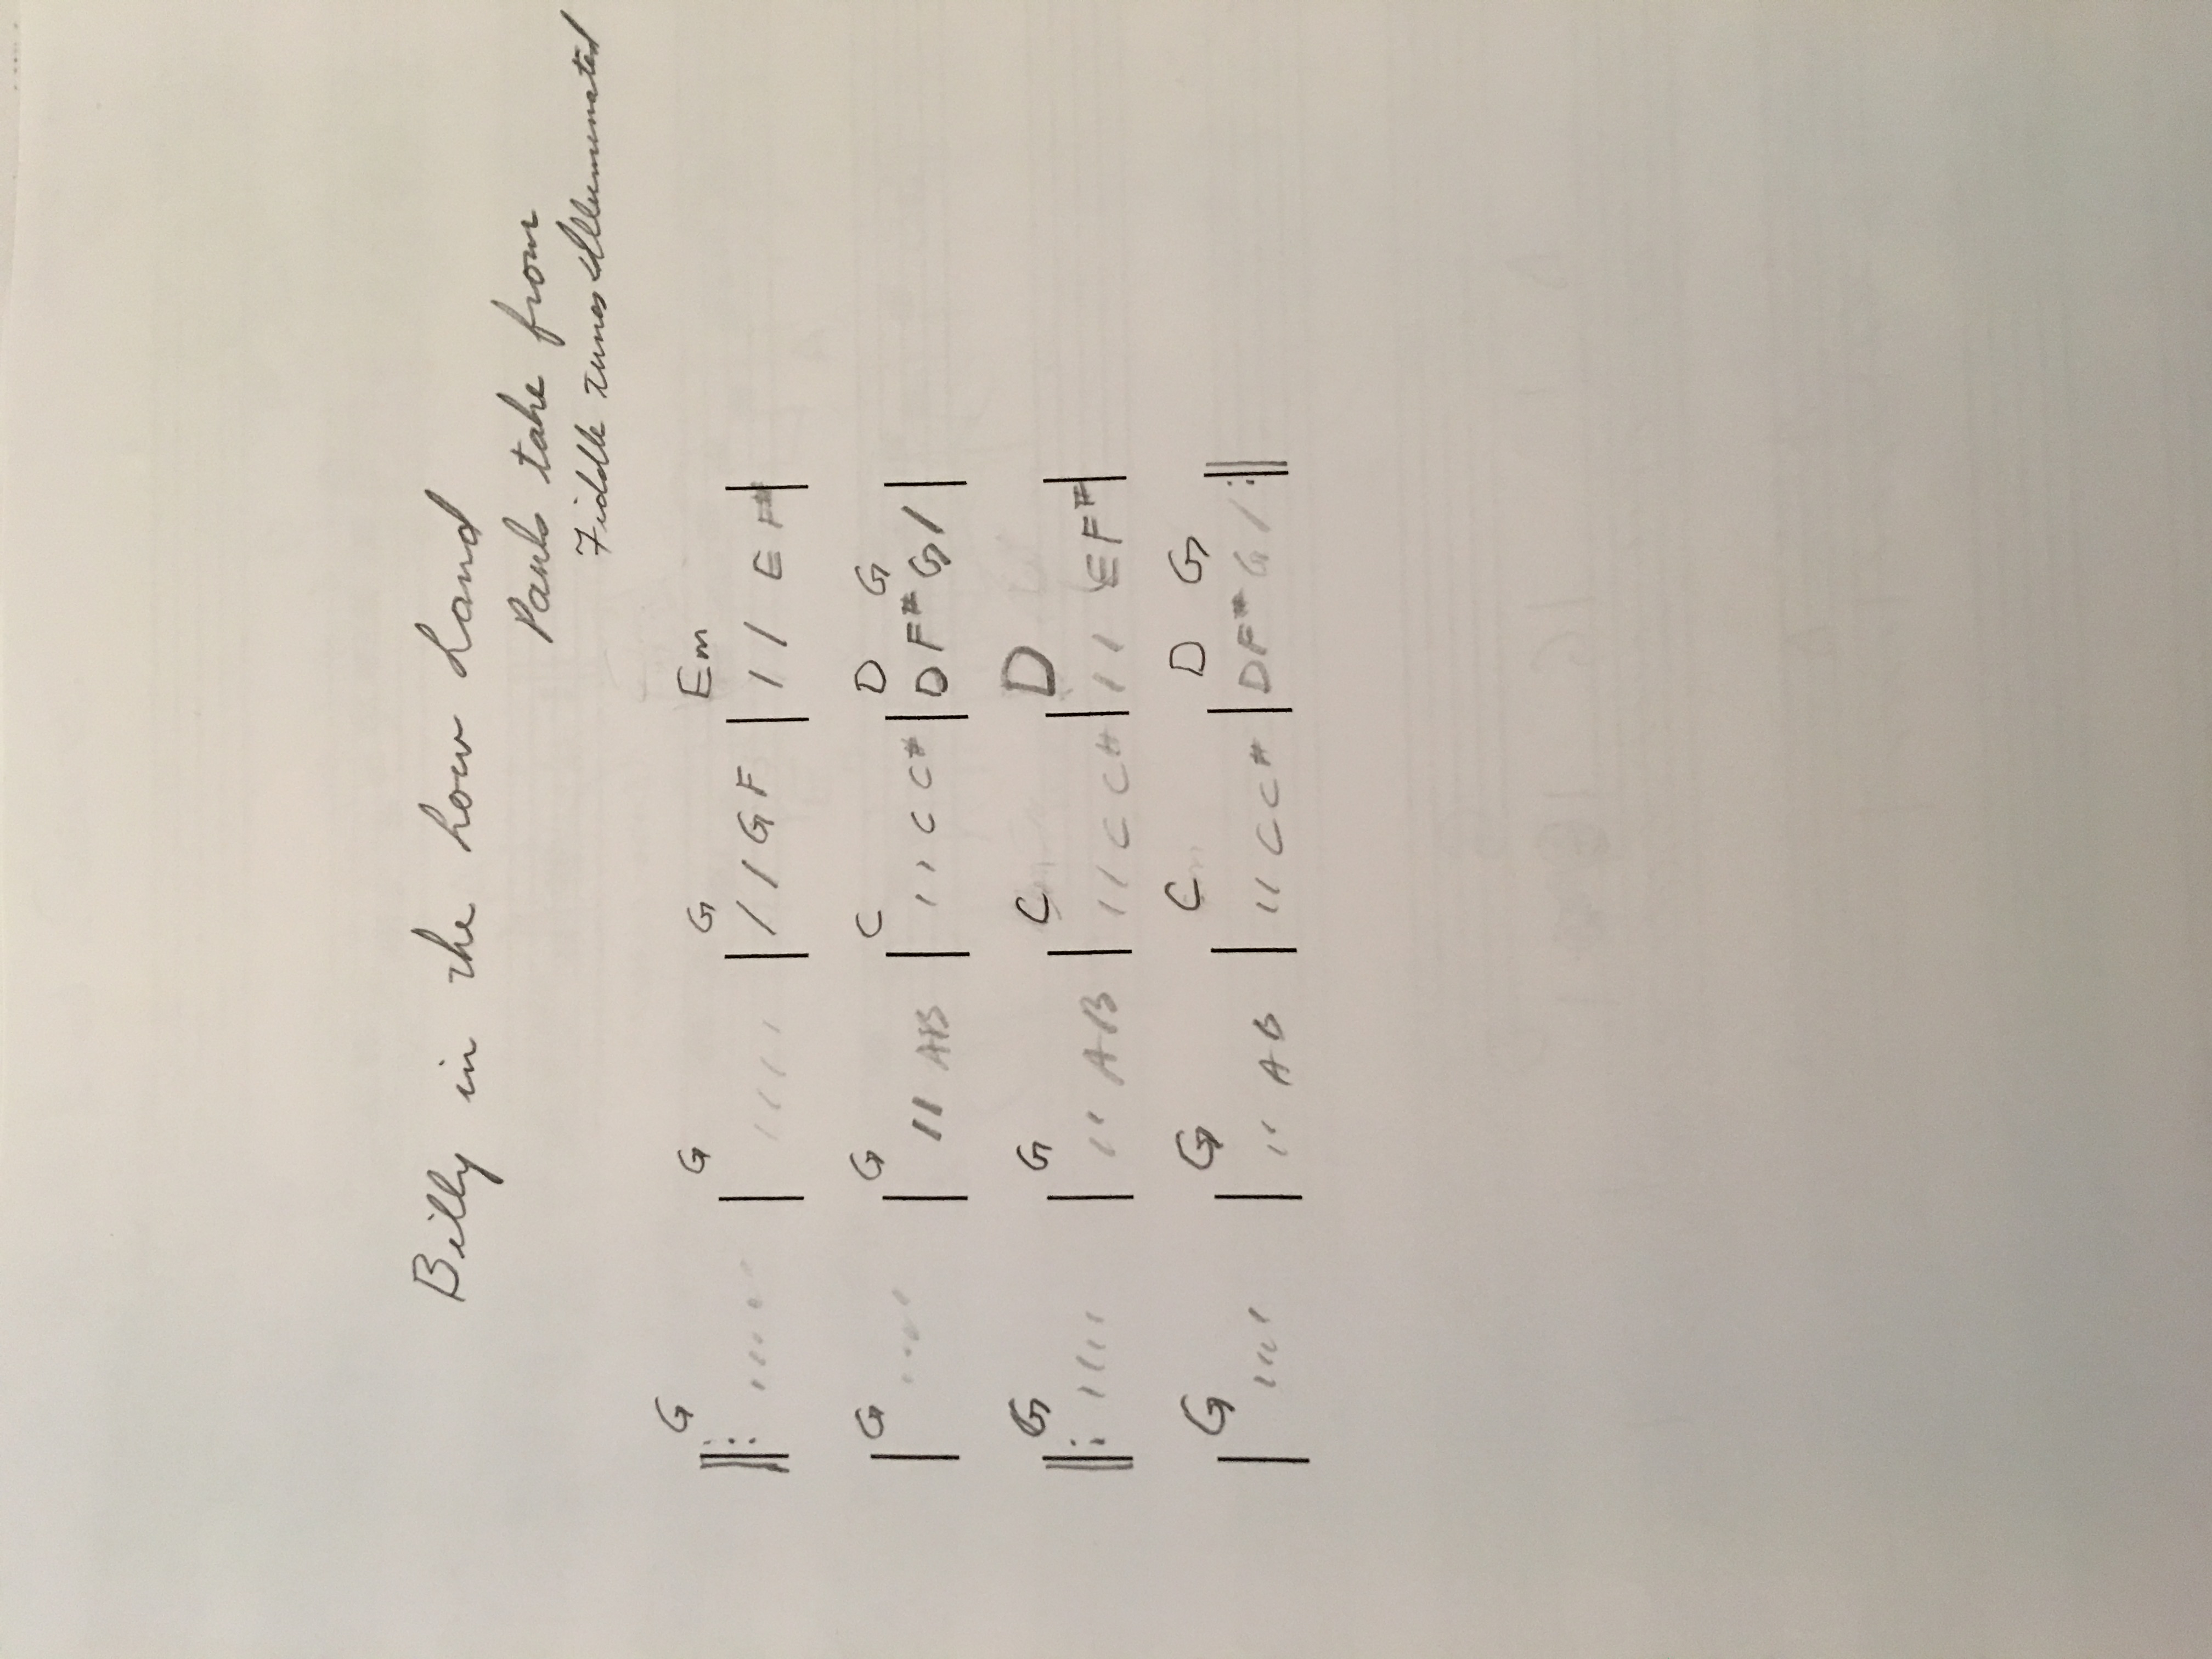 Billy in the Low Land
Pauls take from
Fiddle Tunes Illuminated
G G G Em
‖: ///// | //// | / / G F | / / E F# |
G G C D G
| //// | // A B | / / C C# | D F# G / |
G G C D
‖: //// | // A B | // C C# | / / E F# |
G G C D G
| //// | // A B | // C C# | D F# G / :‖